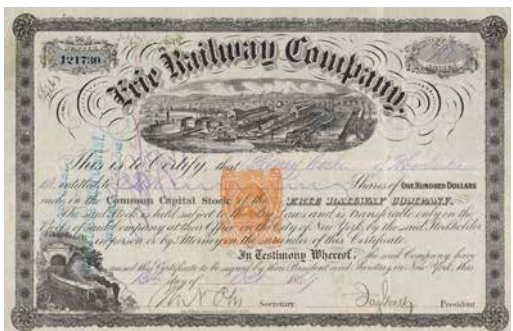 121730
Erie Railway Company.
This is to Certify, that Henry
is entitled to Shares of ONE HUNDRED DOLLARS
each in the Common Capital Stock of the ERIE RAILWAY COMPANY.
The said Stock is held subject to the Bye Laws and is transferable only on the
Books of said Company at their Office in the City of New York by the said Stockholder
in person or by Attorney on the surrender of this Certificate.
In Testimony Whereof, the said Company have
caused this Certificate to be signed by their President and Secretary in New York, this
day of
Secretary. Jay Gould President